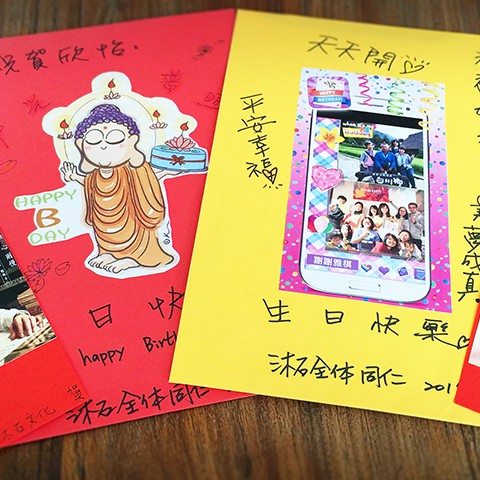 祝賀欣怡.
HAPPY
B
DAY
日快
happy Birth
沐石全体同仁
沐石文化 賀
天天開心
平安幸福
HAPPY
BIRTHDAY
謝謝雅棋
生日快樂
沐石全体同仁 201
夢成真